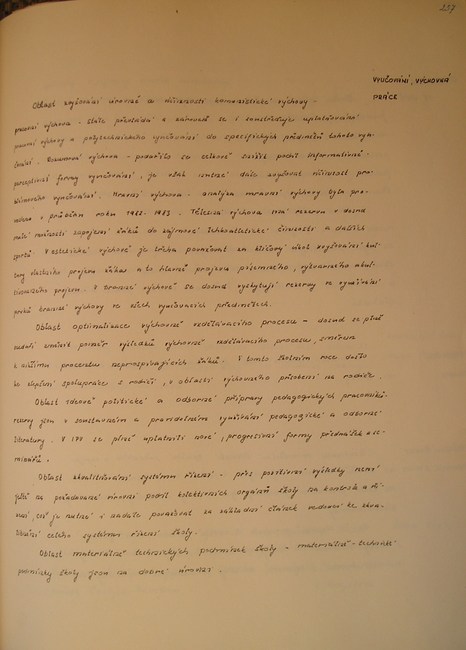 237
VYUČOVÁNÍ, VÝCHOVNÁ
PRÁCE
Oblast zvyšování úrovně a účinnosti komunistické výchovy -
pracovní výchova - stále přetrvává a zároveň se i soustřeďuje uplatňování
pracovní výchovy a polytechnického vyučování do specifických předmětů tohoto vy-
Rozumová výchova - podařilo se celkově snížit podíl informativně-
perceptivní formy vyučování, je však nutné dále zvyšovat účinnost pro-
blémového vyučování. Mravní výchova - analýza mravní výchovy byla pro-
vedena v průběhu roku 1982-1983. Tělesná výchova má rezervu v dosud
malé možnosti zapojení žáků do zájmové lehkoatletické činnosti a dalších
sportů. V estetické výchově je třeba považovat za klíčový úkol zvyšování kul-
tury vlastního projevu žáků a to hlavně projevu písemného, výtvarného a kul-
turního projevu. V branné výchově se dosud vyskytují rezervy ve využívání
prvků branné výchovy ve všech vyučovacích předmětech.
Oblast optimalizace výchovně vzdělávacího procesu - dosud se plně
nedaří výsledků výchovně vzdělávacího procesu,
k nižšímu procentu neprospívajících žáků. V tomto školním roce došlo
ke zlepšení spolupráce s rodiči, v oblasti výchovného působení na rodiče.
Oblast ideově politické a odborné přípravy pedagogických pracovníků-
rezervy jsou v soustavném a pravidelném využívání pedagogické a odborné
literatury. V se plně uplatnili nové, progresivní formy přednášek a se-
minářů.
Oblast zkvalitňování systému řízení - přes pozitivní výsledky není
ještě na požadované úrovni podíl kolektivních orgánů školy na kontrole a ří-
zení, což je nutné i nadále považovat za základní článek vedoucí ke zkva-
litnění celého systému řízení školy.
Oblast materiálně technických podmínek školy - materiálně-technické
podmínky školy jsou na dobré úrovni.